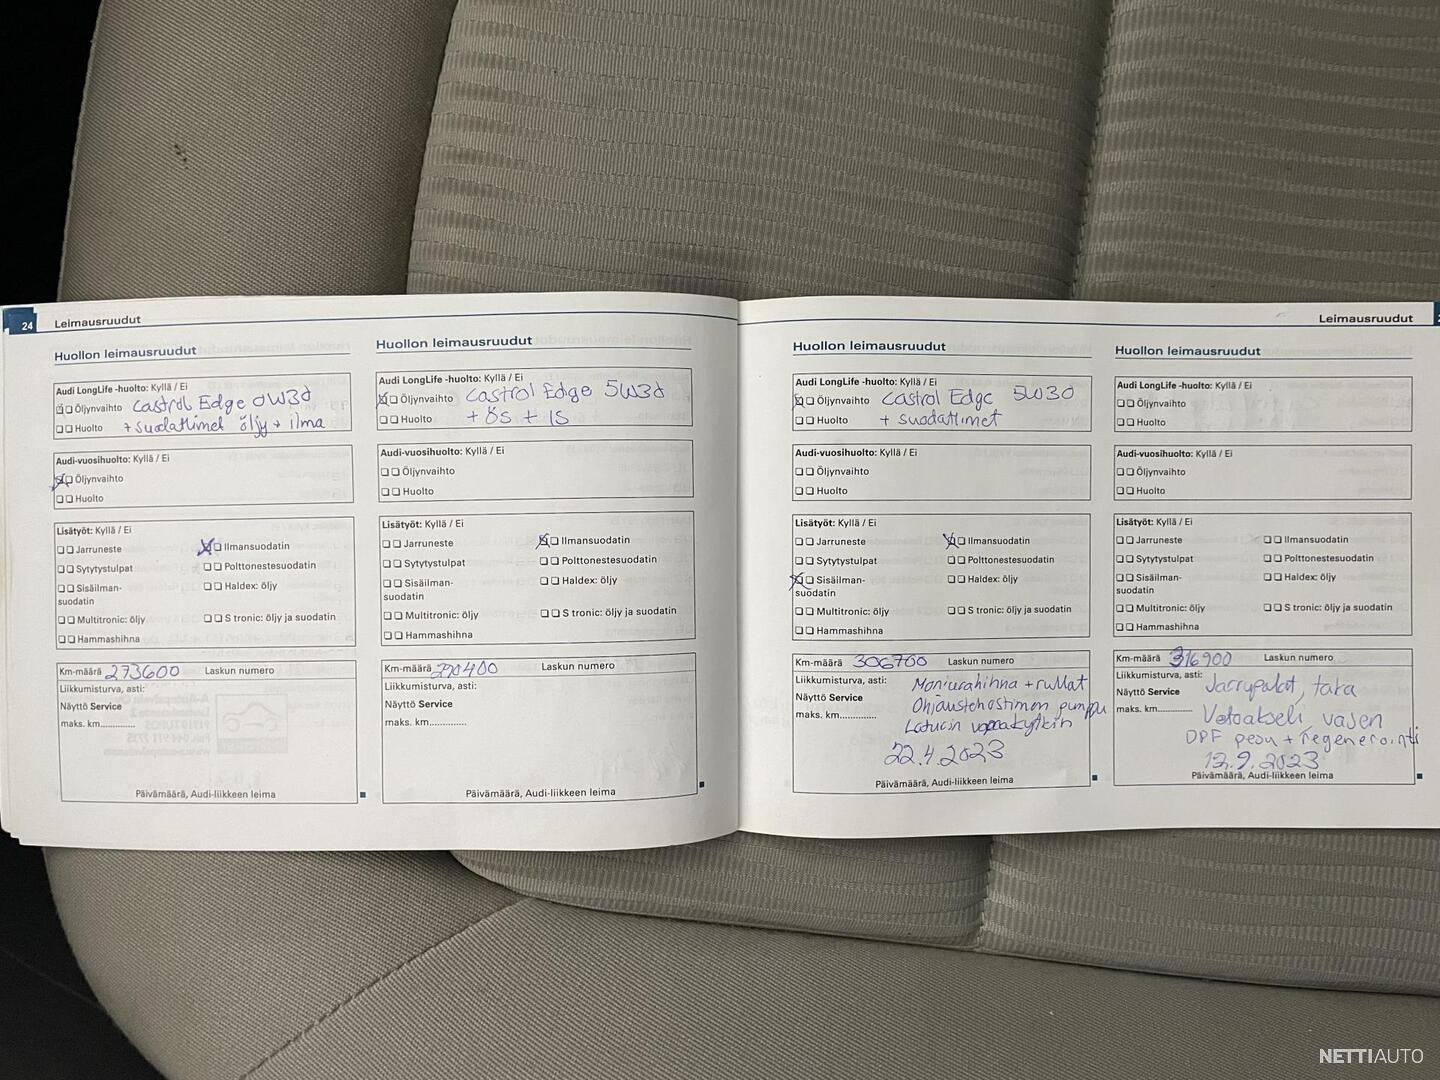 24
Leimausruudut
Huollon leimausruudut
Audi LongLife -huolto: Kyllä / Ei
Öljynvaihto Castrol Edge 0W30
Huolto + suodattimet öljy + ilma
Audi-vuosihuolto: Kyllä / Ei
Öljynvaihto
Huolto
Lisätyöt: Kyllä / Ei
Jarruneste
Ilmansuodatin
Sytytystulpat
Polttonestesuodatin
Sisäilman-
suodatin
Haldex: öljy
Multitronic: öljy
S tronic: öljy ja suodatin
Hammashihna
Km-määrä 273600 Laskun numero
Liikkumisturva, asti:
Näyttö Service
maks. km.............
Päivämäärä, Audi-liikkeen leima
Huollon leimausruudut
Audi LongLife -huolto: Kyllä / Ei
Öljynvaihto Castrol Edge 5W30
Huolto + ÖS + IS
Audi-vuosihuolto: Kyllä / Ei
Öljynvaihto
Huolto
Lisätyöt: Kyllä / Ei
Jarruneste
Ilmansuodatin
Sytytystulpat
Polttonestesuodatin
Sisäilman-
suodatin
Haldex: öljy
Multitronic: öljy
S tronic: öljy ja suodatin
Hammashihna
Km-määrä 290400 Laskun numero
Liikkumisturva, asti:
Näyttö Service
maks. km.............
Päivämäärä, Audi-liikkeen leima
Leimausruudut
Huollon leimausruudut
Audi LongLife -huolto: Kyllä / Ei
Öljynvaihto Castrol Edge 5W30
Huolto + suodattimet
Audi-vuosihuolto: Kyllä / Ei
Öljynvaihto
Huolto
Lisätyöt: Kyllä / Ei
Jarruneste
Ilmansuodatin
Sytytystulpat
Polttonestesuodatin
Sisäilman-
suodatin
Haldex: öljy
Multitronic: öljy
S tronic: öljy ja suodatin
Hammashihna
Km-määrä 306700 Laskun numero
Liikkumisturva, asti: Moniurahihna + rullat
Näyttö Service Ohjaustehostimen pumppu
maks. km............. Laturin vapaakytkin
22.4.2023
Päivämäärä, Audi-liikkeen leima
Huollon leimausruudut
Audi LongLife -huolto: Kyllä / Ei
Öljynvaihto
Huolto
Audi-vuosihuolto: Kyllä / Ei
Öljynvaihto
Huolto
Lisätyöt: Kyllä / Ei
Jarruneste
Ilmansuodatin
Sytytystulpat
Polttonestesuodatin
Sisäilman-
suodatin
Haldex: öljy
Multitronic: öljy
S tronic: öljy ja suodatin
Hammashihna
Km-määrä 316900 Laskun numero
Liikkumisturva, asti:
Näyttö Service Jarrupalat, taka
maks. km............. Vetoakseli, vasen
DPF pesu + regenerointi
12.9.2023
Päivämäärä, Audi-liikkeen leima
NETTIAUTO